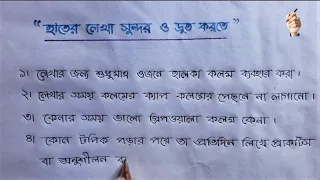 "হাতের লেখা সুন্দর ও দ্রুত করতে"
১। লেখার জন্য শুধুমাত্র ওজনে হালকা কলম ব্যবহার করা।
২। লেখার সময় কলমের ক্যাপ কলমের পেছনে না লাগানো।
৩। কেনার সময় ভালো গ্রিপওয়ালা কলম কেনা।
৪। কোন টপিক পড়ার পরে তা প্রতিদিন লিখে প্র্যাকটিস
বা অনুশীলন